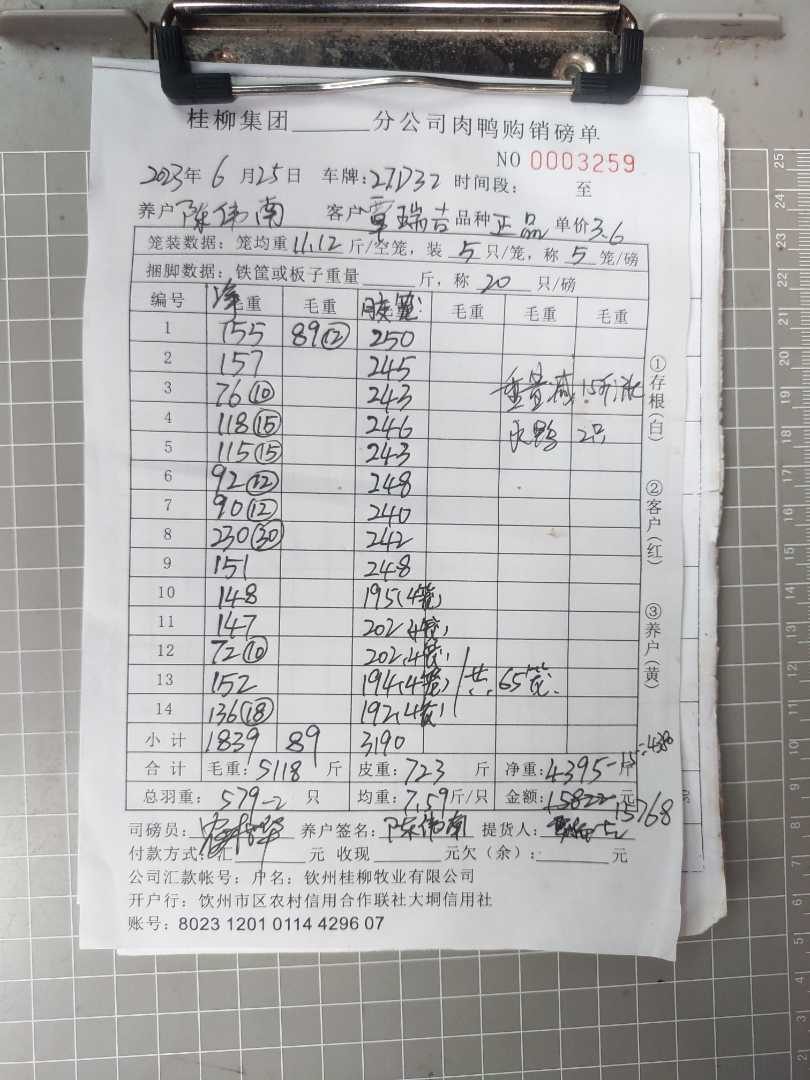 桂柳集团______分公司肉鸭购销磅单
NO 0003259
2023年6月25日 车牌:27D32 时间段: 至
养户 陈伟南 客户 覃瑞吉 品种 正品 单价3.6
笼装数据: 笼均重 11.12 斤/空笼, 装 5 只/笼, 称 5 笼/磅
捆脚数据: 铁筐或板子重量____斤, 称 20 只/磅
编号 净毛重 毛重 胶笼: 毛重 毛重 毛重
1 155 89⑫ 250
2 157 245
3 76⑩ 243 重量减15斤水
4 118⑮ 246 大鸭 2只
5 115⑮ 243
6 92⑫ 248
7 90⑫ 240
8 230㉚ 242
9 151 248
10 148 195(4笼)
11 147 202(4笼)
12 72⑩ 202(4笼)
13 152 194(4笼) 共65笼
14 136⑱ 192(4笼)
小计 1839 89 3190
合计 毛重:5118 斤 皮重:723 斤 净重:4395-15=4380 斤
总羽重: 579-2 只 均重:7.59斤/只 金额:15822元 15768
司磅员: 养户签名: 陈伟南 提货人:
付款方式:汇______元 收现______元欠(余):______元
公司汇款帐号: 户名: 钦州桂柳牧业有限公司
开户行: 钦州市区农村信用合作联社大垌信用社
账号: 8023 1201 0114 4296 07
①存根(白)
②客户(红)
③养户(黄)
25
24
23
22
21